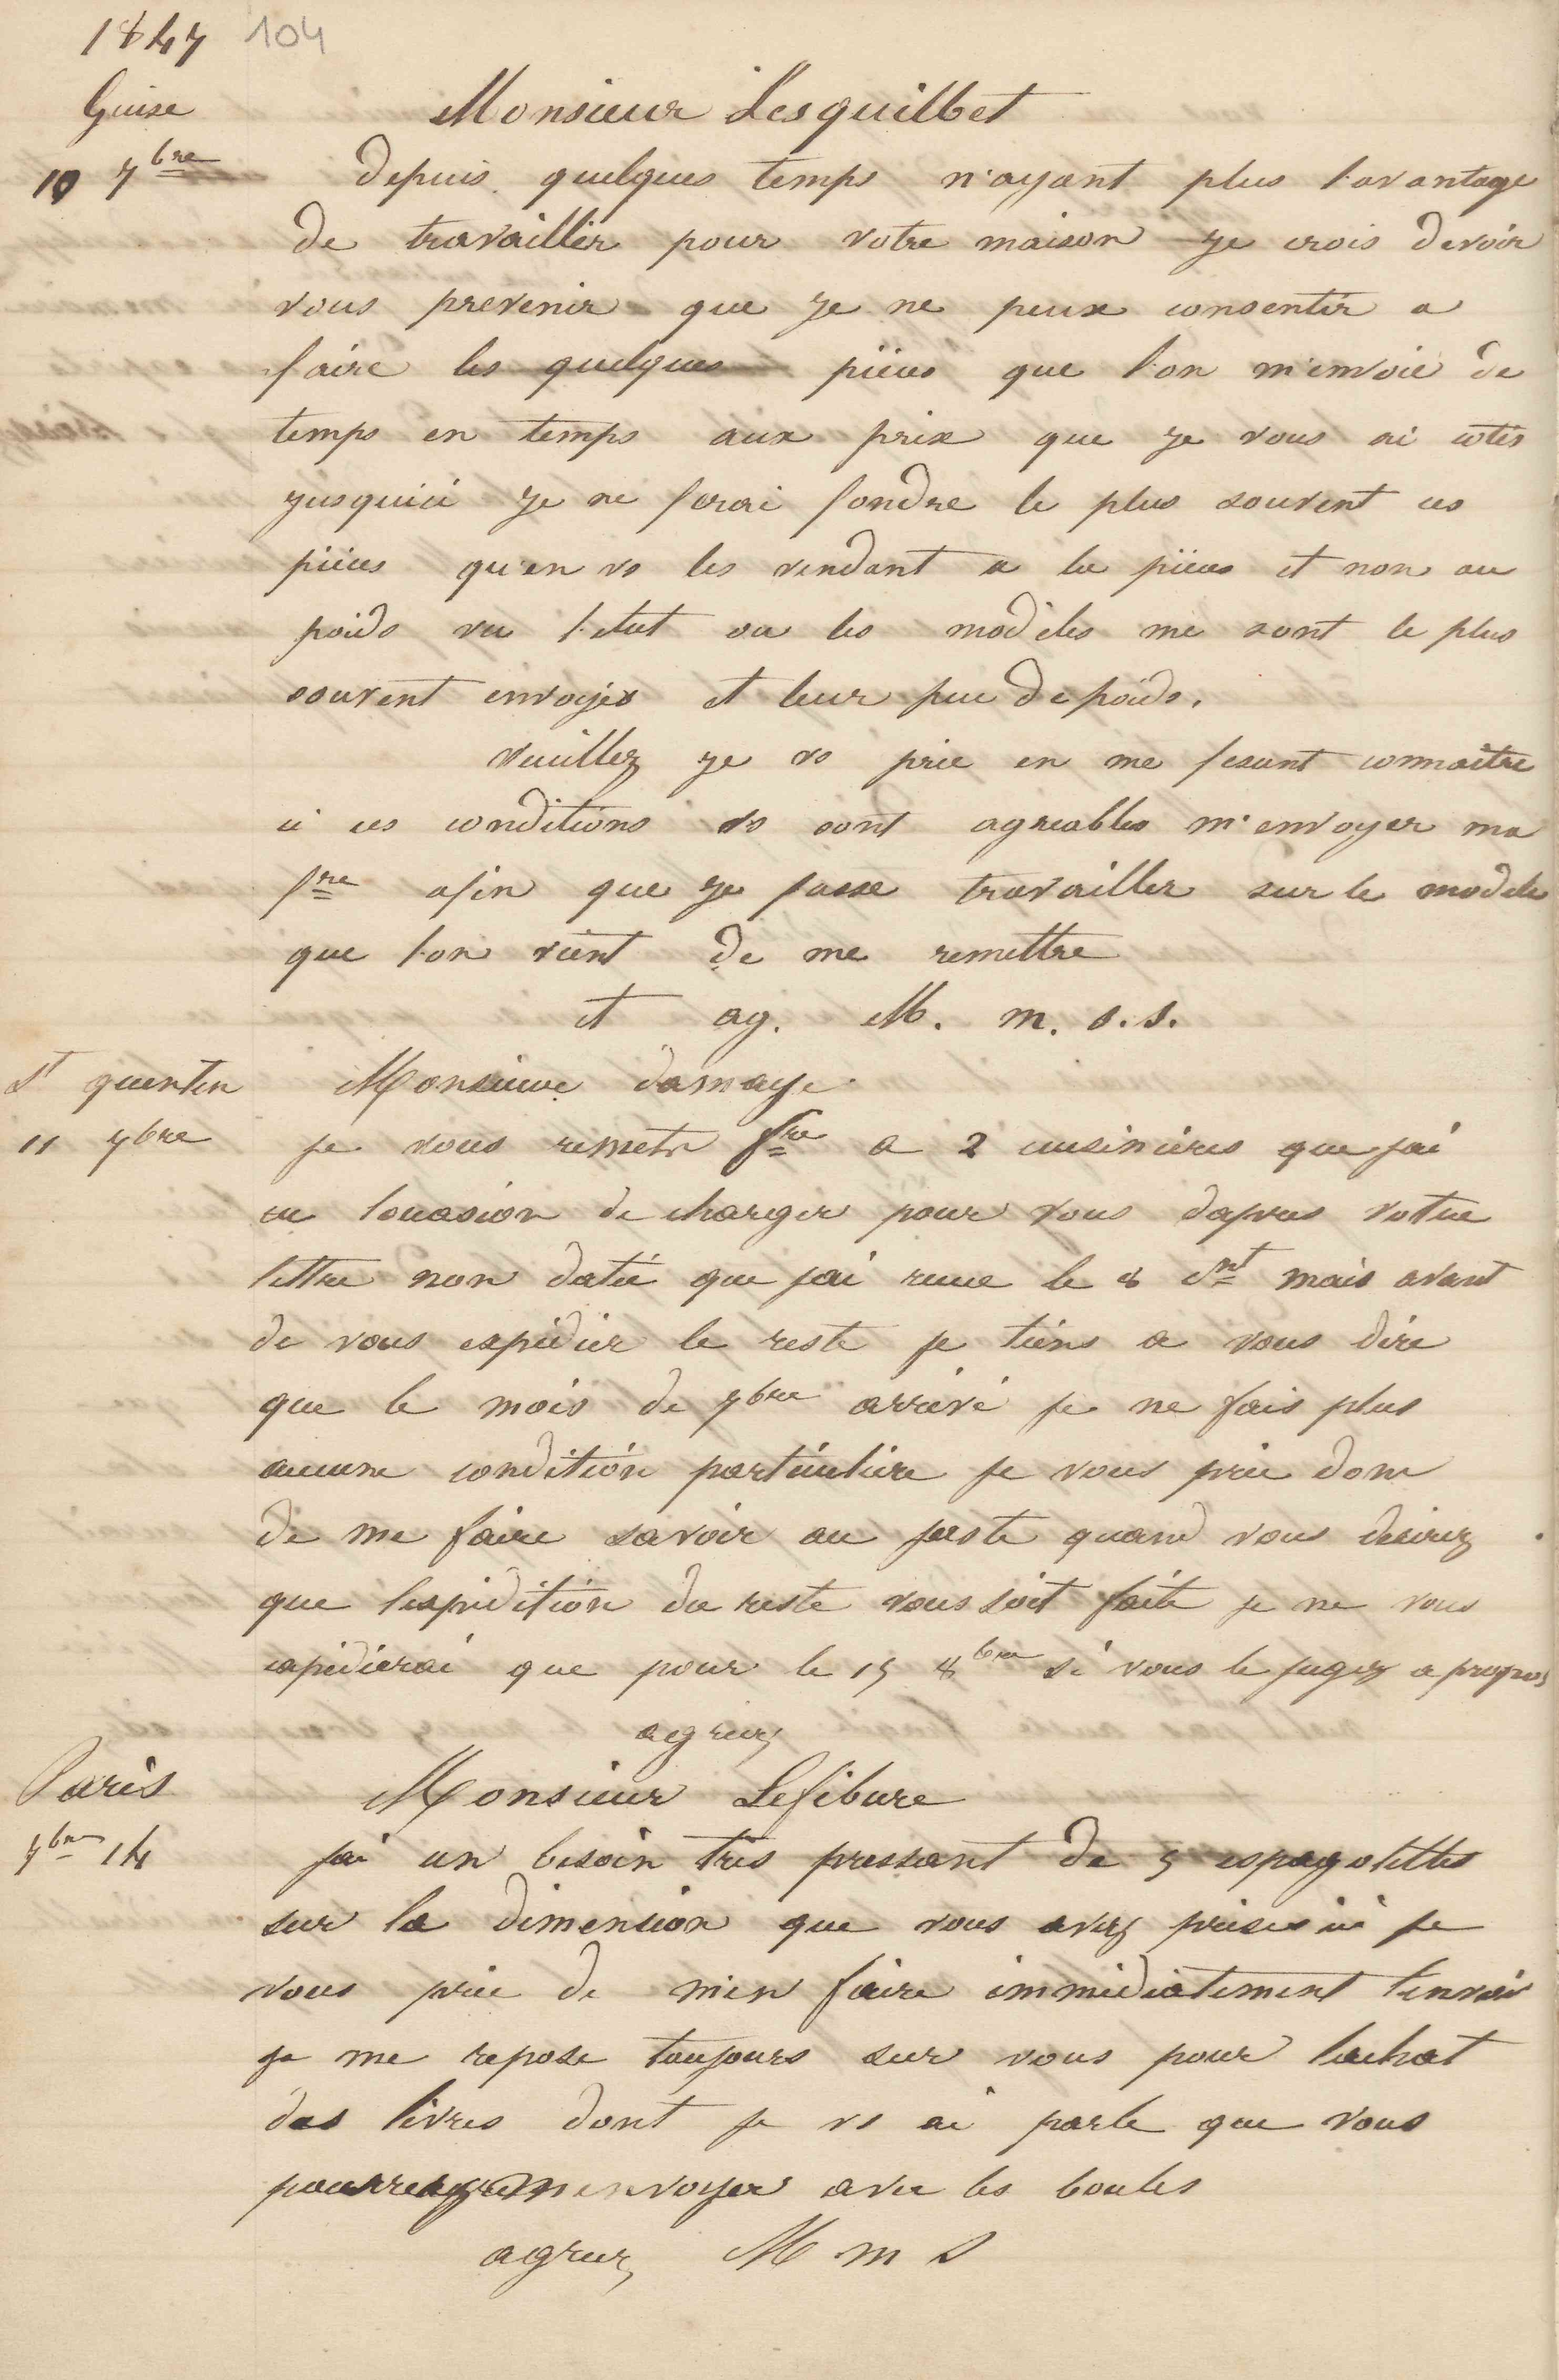 1847 104
Guise
Monsieur Lesquilbet
10 7bre
depuis quelques temps n'ayant plus l'avantage
de travailler pour votre maison je crois devoir
vous prevenir que je ne peux consentir a
faire les quelques pièces que l'on m'envoie de
temps en temps aux prix que je vous ai cotés
jusqu'ici je ne ferai fondre le plus souvent ces
pièces qu'en vs les vendant a la pièces et non au
poids vu l'etat ou les modèles me sont le plus
souvent envoyés et leur peu de poids.
veuillez je vs prie en me fesant connaître
si ces conditions vs sont agreables m'envoyer ma
fre afin que je fasse travailler sur le modele
que l'on vient de me remettre
et ag. M. m. s. s.
St quentin
Monsieur damaye
11 7bre
je vous remets fre a 2 cuisinières que jai
eu locasion de charger pour vous dapres votre
lettre non datée que jai recue le 8 cnt mais avant
de vous expédier le reste je tiens a vous dire
que le mois de 7bre arrivé je ne fais plus
aucune condition particulière je vous prie donc
de me faire savoir au juste quand vous desirez
que lexpédition du reste vous soit faite je ne vous
expédierai que pour le 15 8bre si vous le jugez a propos
agreez
Paris
Monsieur Lefébure
7bre 14
jai un besoin très pressant de 5 espagolettes
sur la dimension que vous avez prises ici je
vous prie de m'en faire immédiatement lenvoi
je me repose toujours sur vous pour lachat
des livres dont je vs ai parle que vous
pourrez menvoyer avec les boules
agreez M m S